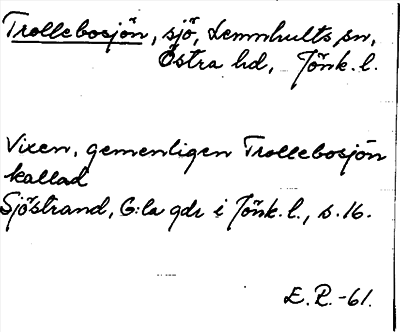 Trollebosjön, sjö, Lemnhults sn,
Östra hd, Jönk. l.
Vixen, gemenligen Trollebosjön
kallad
Sjöstrand, G:la gdr i Jönk. l., s. 16.
E. R. -61.